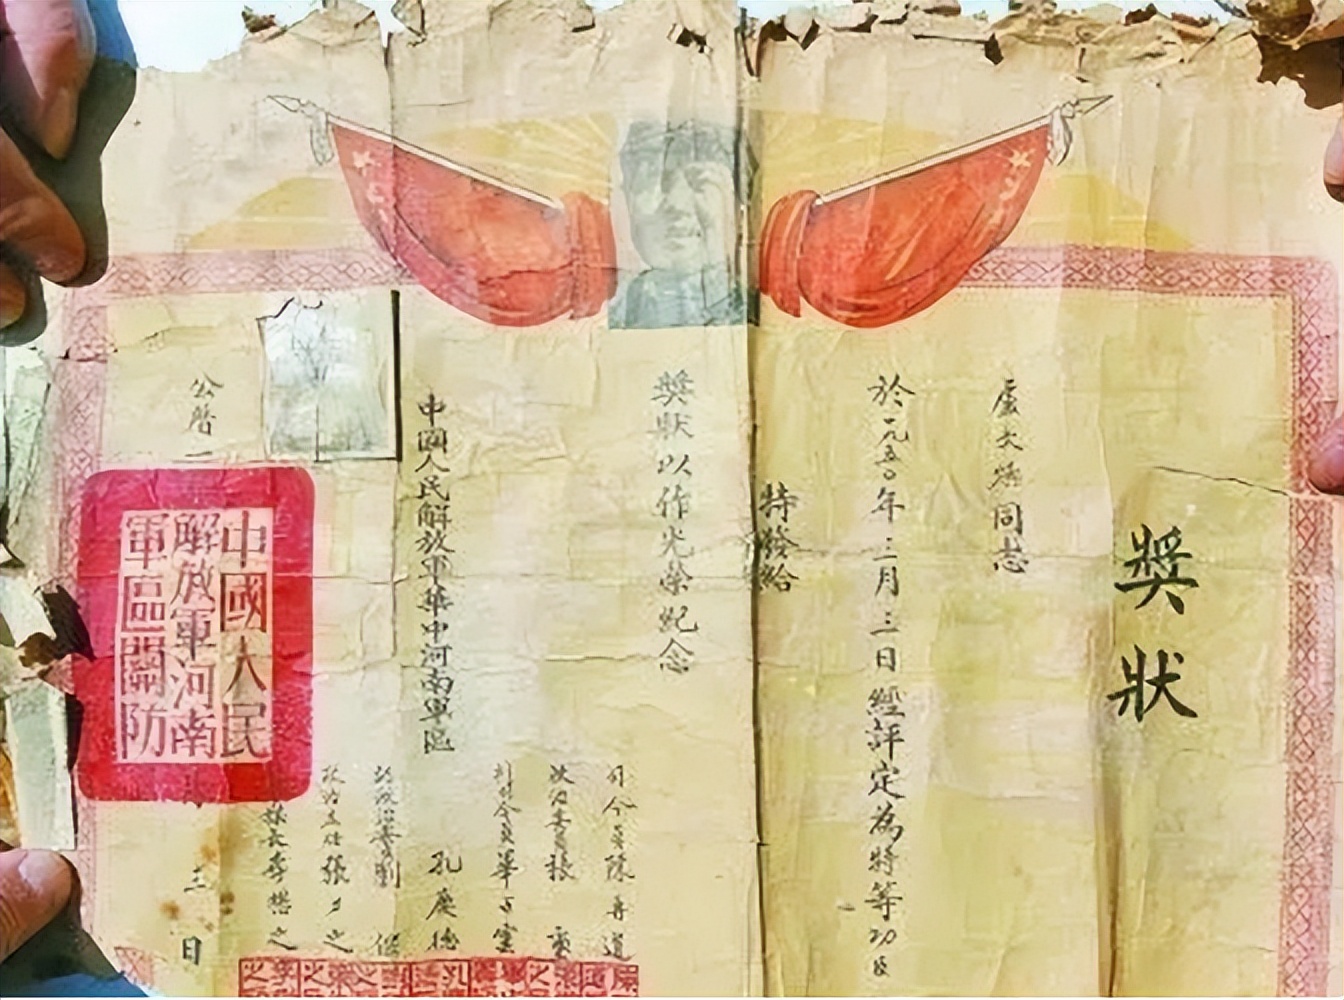 獎狀
盧文煥同志
於一九五〇年三月三日經評定為特等功臣
特發給
獎狀以作光榮紀念
中國人民解放軍華中河南軍區
司令員陳再道
政治委員張
副司令員畢占雲
孔慶德
劉
政治主任張
李懋之
公曆一
三日
中國人民
解放軍河南
軍區關防